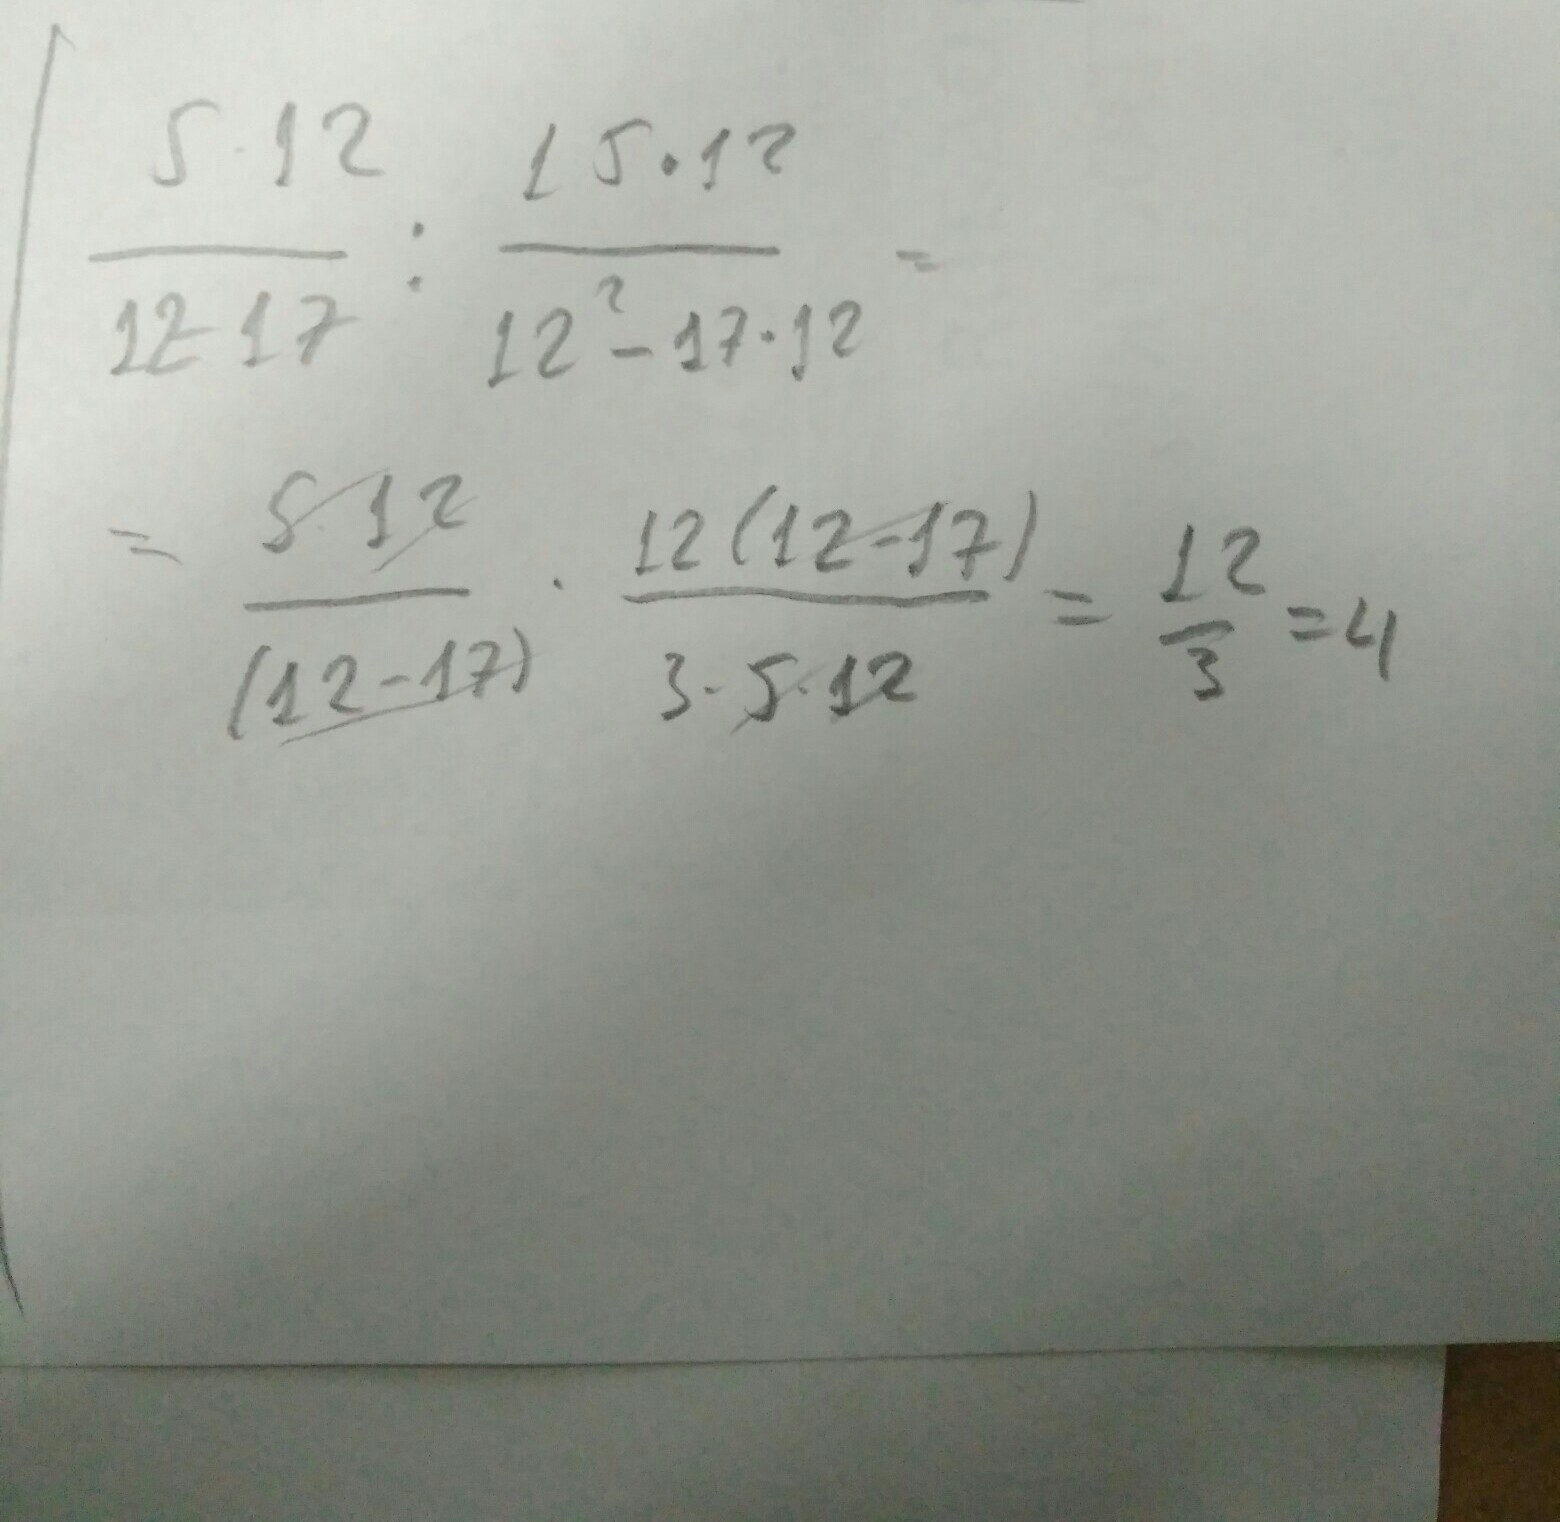 5·12/12-17 : 15·12/12²-17·12 =
= 5·12/(12-17) · 12(12-17)/3·5·12 = 12/3 = 4